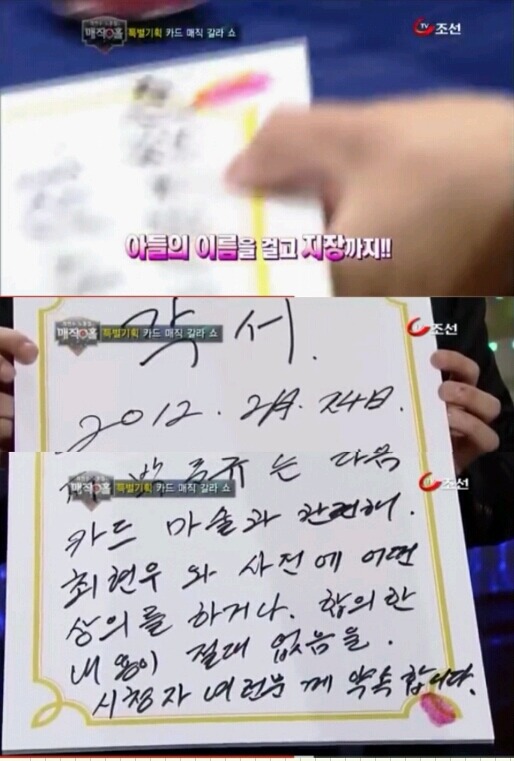 매직홀 특별기획 카드 매직 갈라 쇼
TV조선
아들의 이름을 걸고 지장까지!!
매직홀 특별기획 카드 매직 갈라 쇼
조선
각서.
2012. 2月. 24日.
매직홀 특별기획 카드 매직 갈라 쇼
조선
는 다음
카드 마술과 관련해.
최현우 와 사전에 어떤
상의를 하거나. 합의한
내용이 절대 없음을.
시청자 여러분 께 약속 합니다.